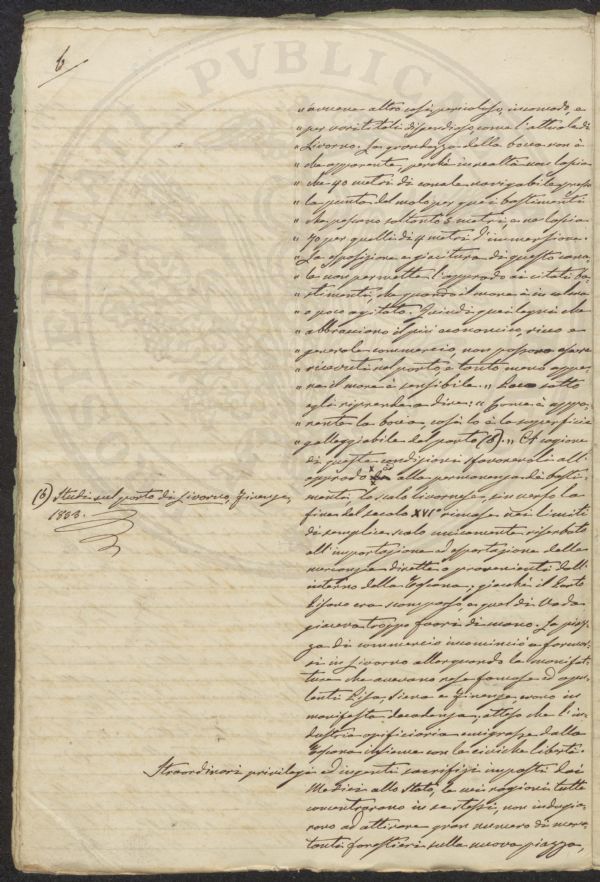 6
" avviene altro così pericoloso, incomodo, e
" per varii titoli dispendioso, come l'attuale di
" Livorno. La grandezza della bocca non è
" che apparente, perchè in realtà non lascia
" che 40 metri di canale navigabile presso
" la punta del molo per que' bastimenti
" che pescano soltanto 5 metri, e ne lascia
" 70 per quelli di 4 metri d'immersione.
" La esposizione e giacitura di questo cana-
" le non permette l'approdo ai citati ba-
" stimenti, che quando il mare è in calma
" o poco agitato. Quindi quei legni che
" abbracciano il più economico, ricco e
" generale commercio, non possono essere
" ricevuti nel porto, e tanto meno appe-
" na il mare è sensibile. " Poco sotto
egli riprende a dire: " Come è appa-
" rente la bocca, così lo è la superficie
" galleggiabile del porto (6). " A cagione
di queste condizioni sfavorevoli all'
approdo e alla permanenza di basti-
menti, lo scalo livornese, in verso la
fine del secolo XVI° rimase nei limiti
di semplice scalo unicamente riserbato
all'importazione ed esportazione delle
mercanzie dirette o provenienti dall'
interno della Toscana; giacchè il Porto
Pisano era scomparso e quel di Vada
giaceva troppo fuori di mano. La piaz-
za di commercio incominciò a formar-
si in Livorno allorquando le manifat-
ture che avevano rese famose ed opu-
lenti Pisa, Siena e Firenze, erano in
manifesta decadenza; atteso che l'in-
dustria opificiaria emigrasse dalla
Toscana insieme con le civiche libertà.
Straordinari privilegi ed ingenti sacrifizi imposti dai
Medici allo Stato, le cui ragioni tutte
concentrarono in se stessi, non indugia-
rono ad attirare gran numero di merca-
tanti forestieri sulla nuova piazza,
(6) Studi sul porto di Livorno, Firenze,
1833.